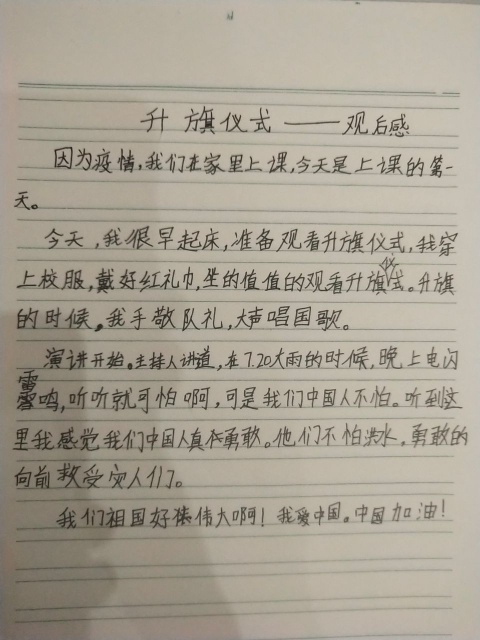 升旗仪式——观后感
因为疫情,我们在家里上课,今天是上课的第一
天。
今天,我很早起床,准备观看升旗仪式,我穿
上校服,戴好红礼巾,坐的值值的观看升旗仪式。升旗
的时候,我手敬队礼,大声唱国歌。
演讲开始。主持人讲道,在7.20大雨的时候,晚上电闪
雷鸣,听听就可怕啊,可是我们中国人不怕。听到这
里我感觉我们中国人真勇敢。他们不怕洪水,勇敢的
向前救受灾人们。
我们祖国好伟大啊!我爱中国。中国加油!